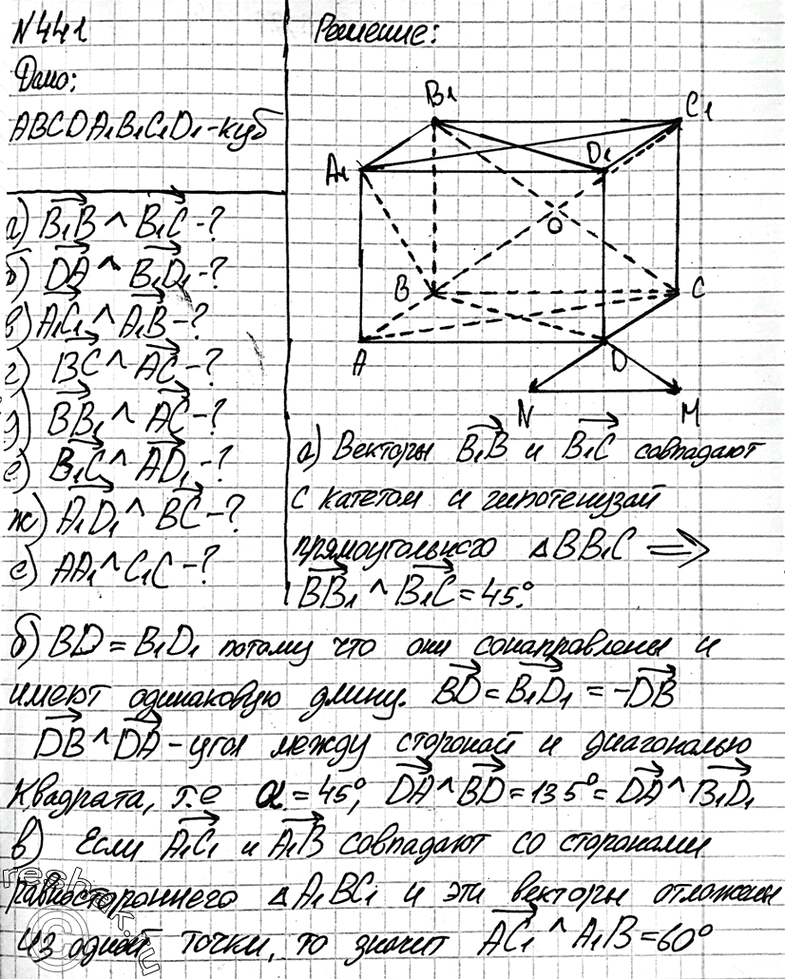 N441
Дано:
ABCDA1B1C1D1-куб
а) B1B ^ B1C-?
б) DA ^ B1D1-?
в) A1C1 ^ A1B-?
г) BC ^ AC-?
д) BB1 ^ AC-?
е) B1C ^ AD1-?
ж) A1D1 ^ BC-?
е) AA1 ^ C1C-?
Решение:
B1
C1
A1
D1
O
B
C
A
D
N
M
а) Векторы B1B и B1C совпадают
с катетом и гипотенузай
прямоугольного △BB1C ⟹
BB1 ^ B1C = 45°.
б) BD = B1D1 потому что они сонаправлены и
имеют одинаковую длину. BD = B1D1 = -DB
DB ^ DA - угол между стороной и диагональю
квадрата, т.е α = 45°, DA ^ BD = 135° = DA ^ B1D1
в) Если A1C1 и A1B совпадают со сторонами
равностороннего △A1BC1 и эти векторы отложены
из одной точки, то значит AC1 ^ A1B = 60°
reshak.ru